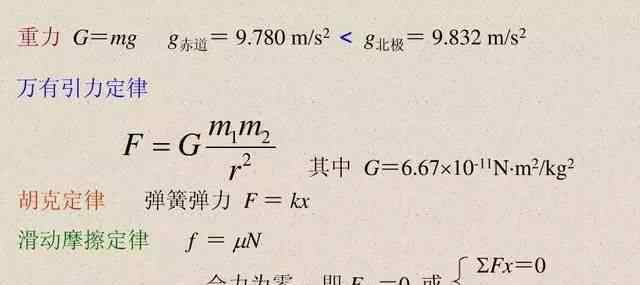 重力 G=mg g赤道= 9.780 m/s² < g北极= 9.832 m/s²
万有引力定律
F = G m₁m₂ / r² 其中 G=6.67×10⁻¹¹N·m²/kg²
胡克定律 弹簧弹力 F = kx
滑动摩擦定律 f = μN
合力为零 即 F =0 或 { ΣFx=0